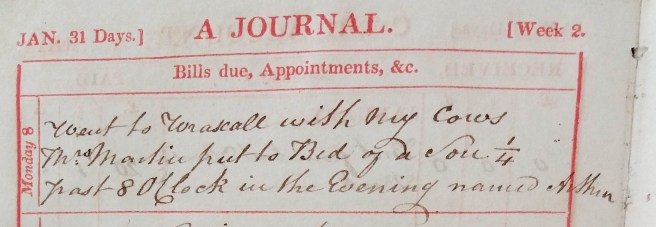 JAN. 31 Days.] A JOURNAL. [Week 2.
Bills due, Appointments, &c.
Monday 8
Went to Wraxall with my Cows
Mrs Martin put to Bed of a Son 1/4
past 8 OClock in the Evening named Arthur